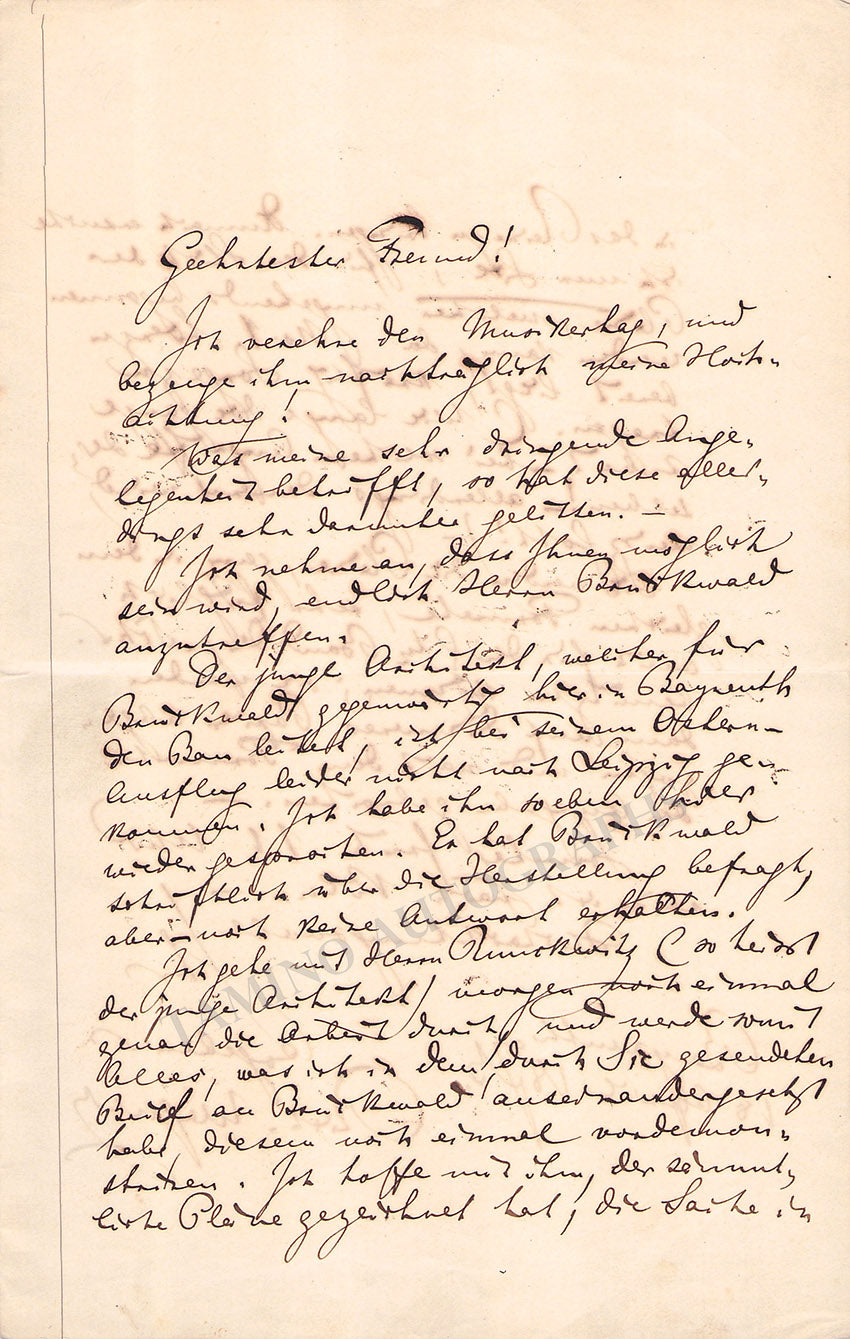 Geehrtester Freund!
Ich verehre den Musikertag, und
bezeuge ihm nachträglich meine Hoch-
achtung!
Was meine sehr dringende Ange-
legenheit betrifft, so hat diese aller-
dings sehr darunter gelitten. –
Ich nehme an, dass Ihnen möglich
sein wird, endlich Herrn Brückwald
anzutreffen.
Der junge Architekt, welcher für
Brückwald gegenwärtig hier in Bayreuth
den Bau leitet, ist bei seinem Ostern-
Ausflug leider nicht nach Leipzig ge-
kommen. Ich habe ihn soeben hier
wieder gesprochen. Er hat Brückwald
schriftlich über die Herstellung befragt,
aber – noch keine Antwort erhalten.
Ich gehe mit Herrn Runckwitz (so heisst
der junge Architekt) morgen noch einmal
genau die Arbeit durch, und werde somit
Alles, was ich in dem, durch Sie gesendeten
Brief an Brückwald auseinandergesetzt
habe, diesem noch einmal vordemon-
striren. Ich hoffe mit ihm, der sämmt-
liche Pläne gezeichnet hat, die Sache in
TAMINO AUTOGRAPHS